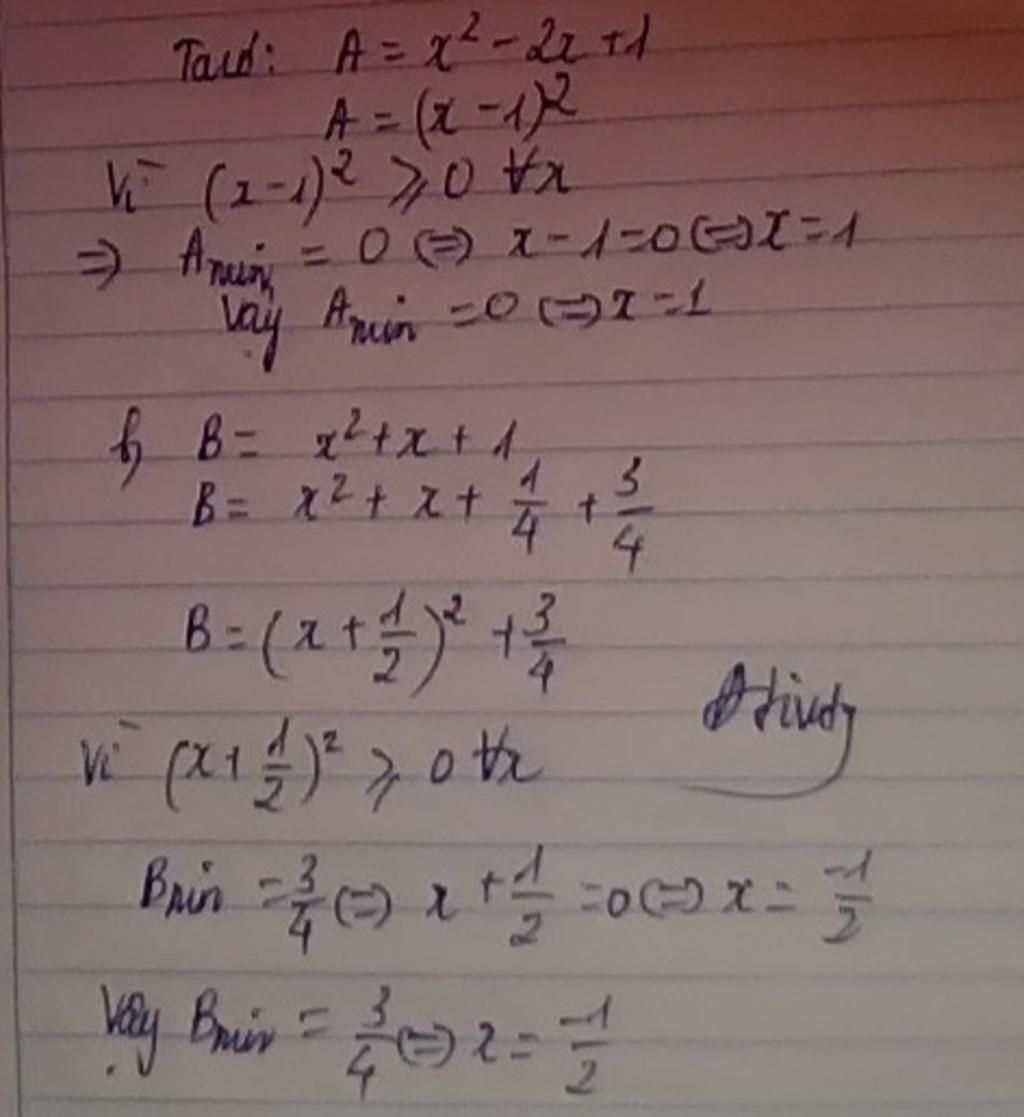 Ta có: A = x² - 2x + 1
A = (x - 1)²
Vì (x - 1)² ⩾ 0 ∀x
=> Amin = 0 <=> x - 1 = 0 <=> x = 1
Vậy Amin = 0 <=> x = 1
b, B = x² + x + 1
B = x² + x + 1/4 + 3/4
B = (x + 1/2)² + 3/4
Vì (x + 1/2)² ⩾ 0 ∀x
Bmin = 3/4 <=> x + 1/2 = 0 <=> x = -1/2
Vậy Bmin = 3/4 <=> x = -1/2